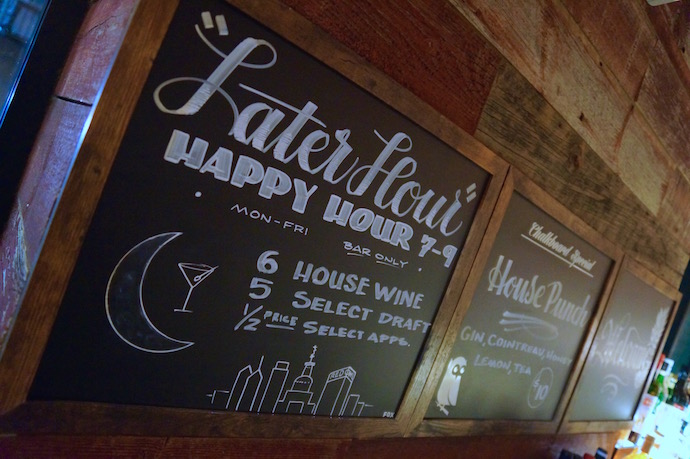 "Later Hour"
HAPPY HOUR 7-9
MON-FRI
BAR ONLY
6 HOUSE WINE
5 SELECT DRAFT
1/2 PRICE SELECT APPS.
PSFS
Chalkboard Special
House Punch
GIN, COINTREAU,
LEMON, TEA
$10